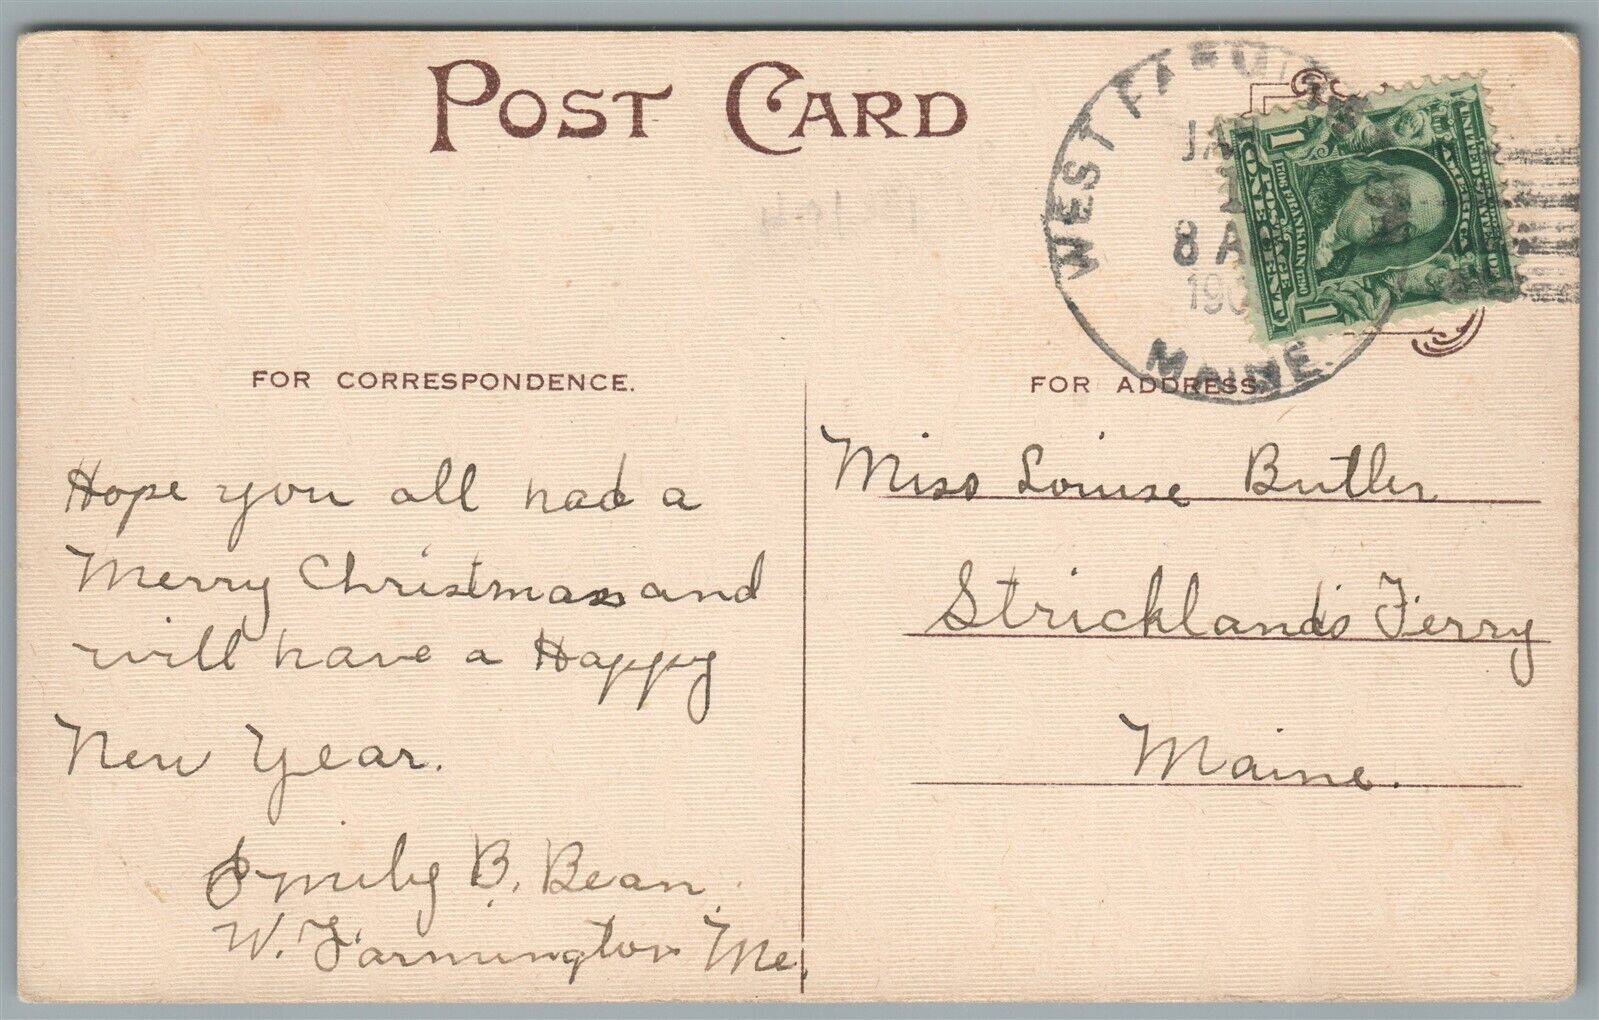 POST CARD
WEST FARMINGTON
JA
1
8 A
190
MAINE.
1 1
UNITED STATES OF AMERICA
BENJ. FRANKLIN
POSTAGE
ONE CENT
FOR CORRESPONDENCE.
FOR ADDRESS.
Hope you all had a
Merry Christmas and
will have a Happy
New Year.
Emily B. Bean.
W. Farmington Me.
Miss Louise Butler
Stricklands Ferry
Maine.